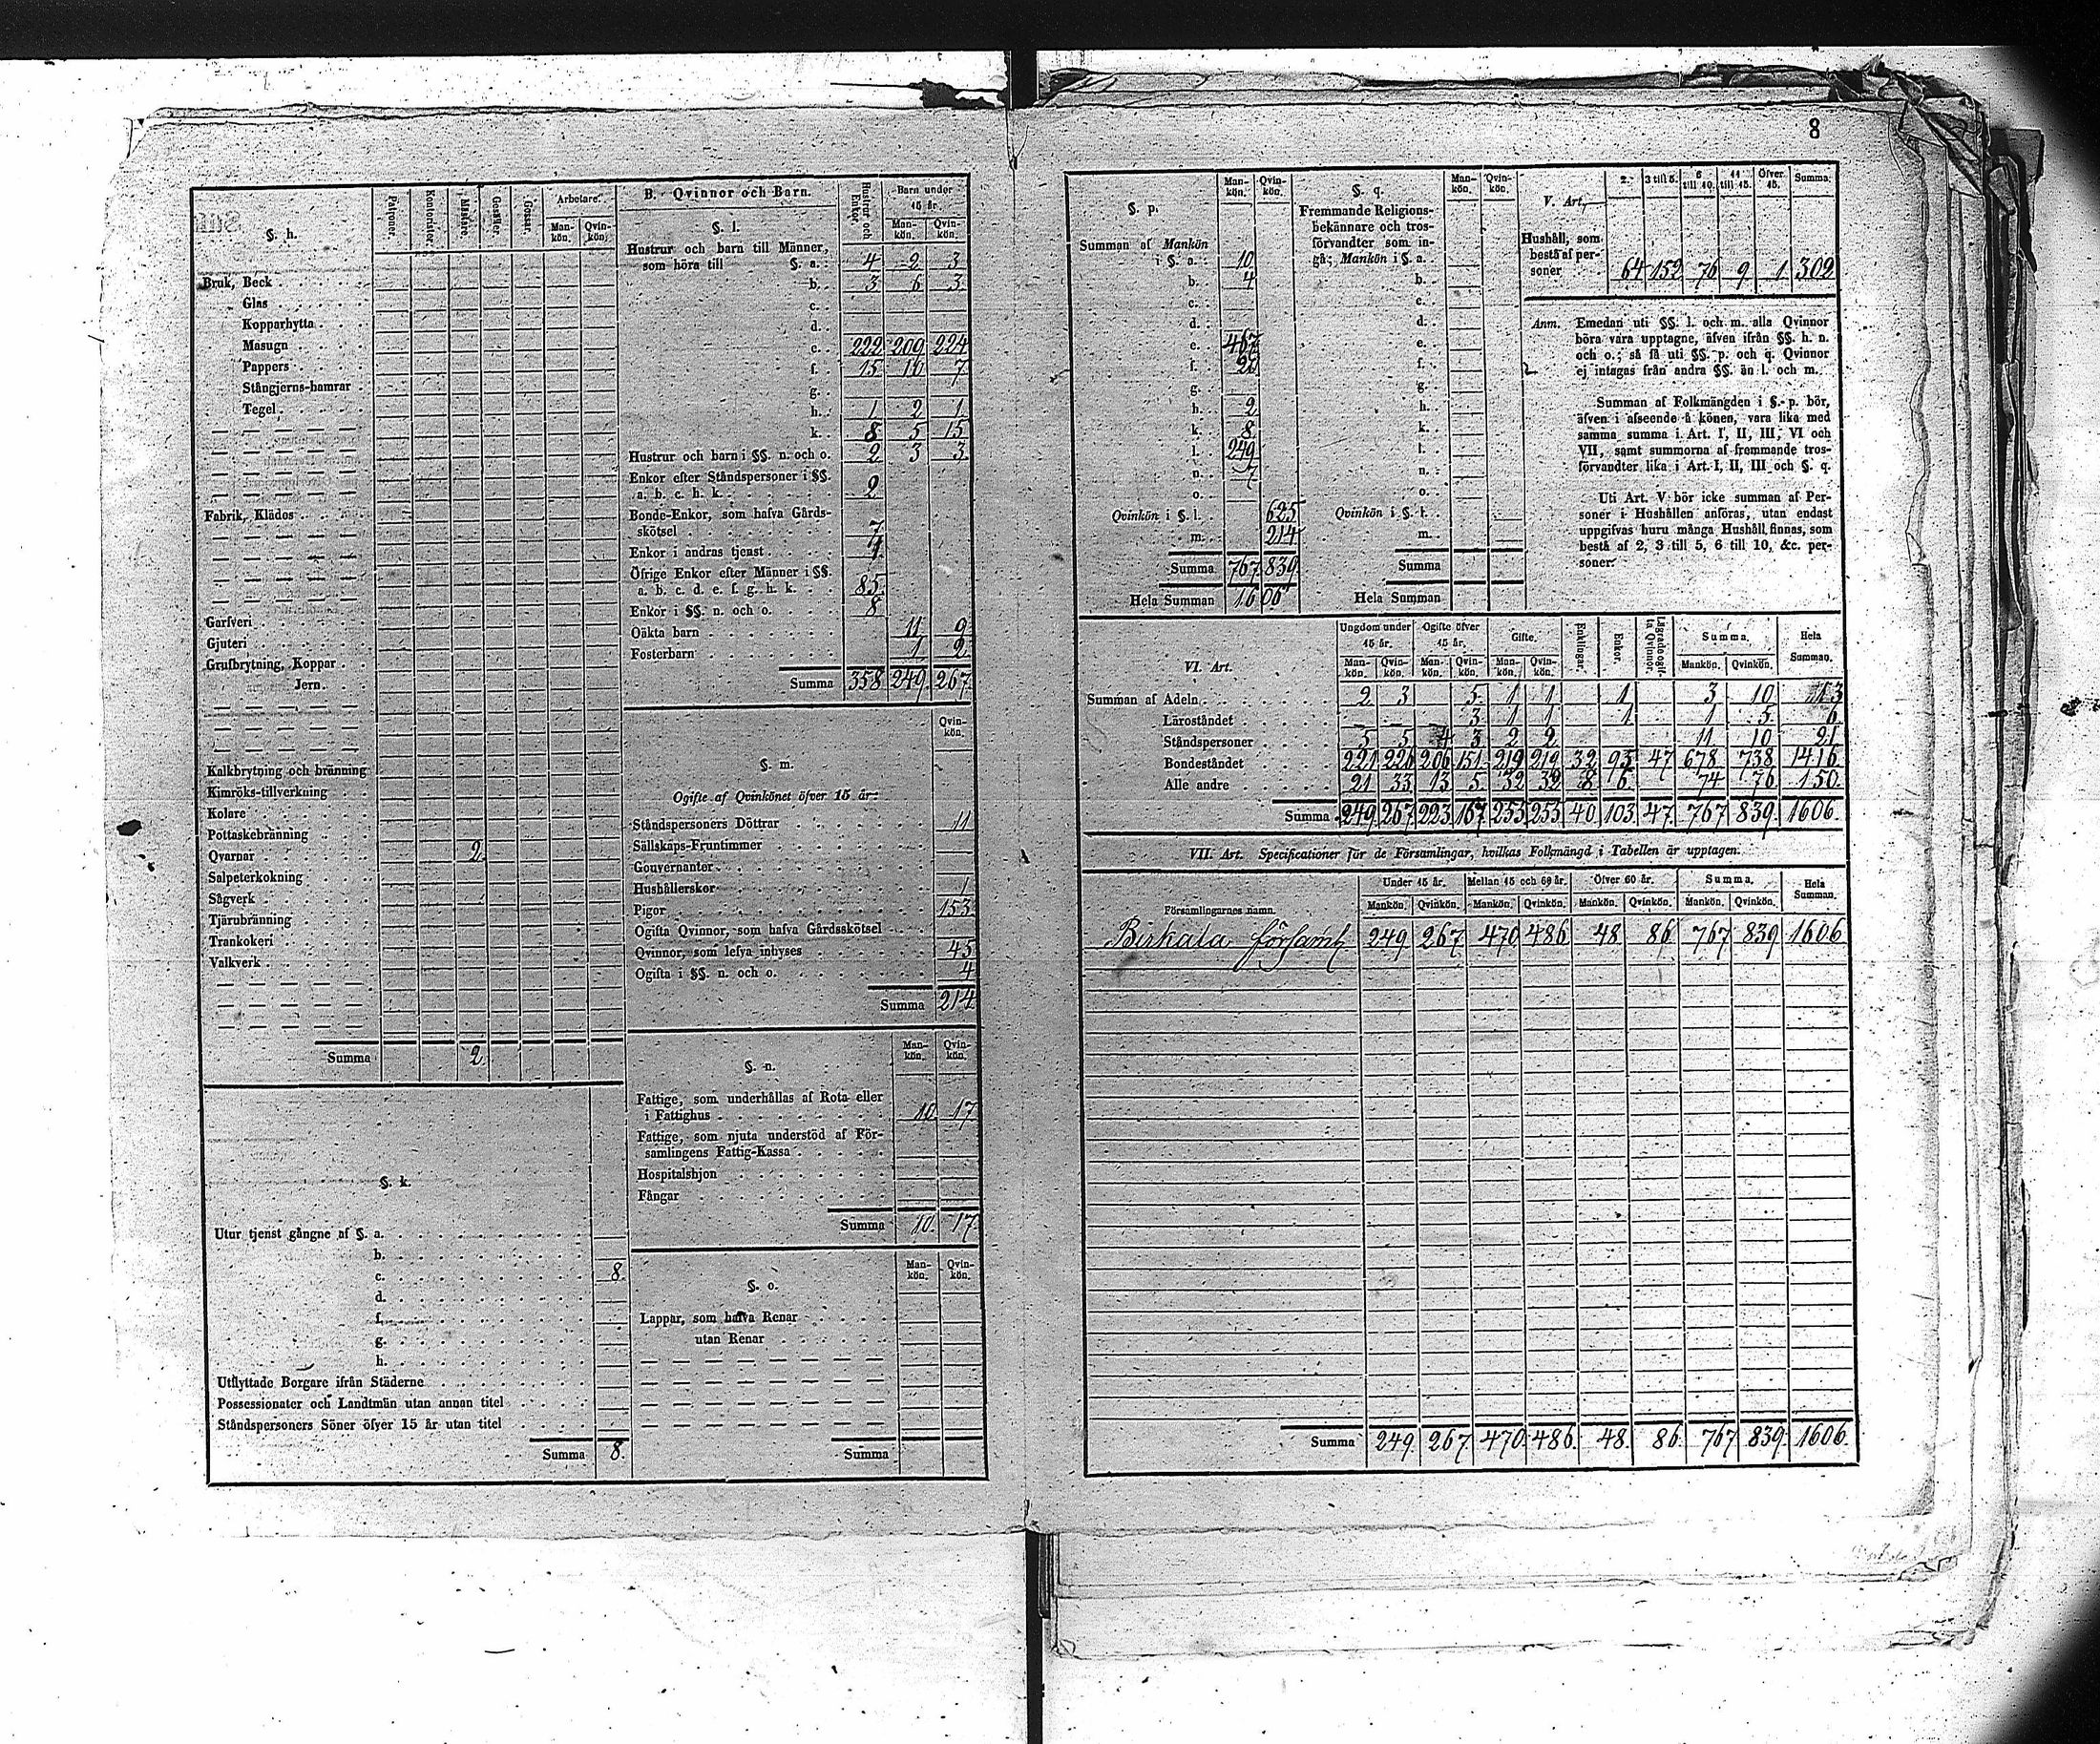 8
§. h.
Patroner.
Kontorister.
Mästare.
Gesäller.
Gossar.
Arbetare.
Man-kön.
Qvin-kön.
Bruk, Beck
Glas
Kopparhytta
Masugn
Pappers
Stångjerns-hamrar
Tegel
Fabrik, Klädes
Garfveri
Gjuteri
Grufbrytning, Koppar
Jern
Kalkbrytning och bränning
Kimröks-tillverkning
Kolare
Pottaskebränning
Qvarnar 2
Salpeterkokning
Sågverk
Tjärubränning
Trankokeri
Valkverk
Summa 2
§. k.
Utur tjenst gångne af §. a.
b.
c. 8.
d.
f.
g.
h.
Utflyttade Borgare ifrån Städerne
Possessionater och Landtmän utan annan titel
Ståndspersoners Söner öfver 15 år utan titel
Summa 8.
B. Qvinnor och Barn.
Hustrur och Enkor
Barn under 15 år.
Man-kön.
Qvin-kön.
§. l.
Hustrur och barn till Männer,
som höra till §. a. 4 2 3
b. 3 6 3
c.
d.
e. 222 209 224
f. 15 10 7
g.
h. 1 2 1
k. 8 5 15
Hustrur och barn i §§. n. och o. 2 3 3
Enkor efter Ståndspersoner i §§.
a. b. c. h. k. 2
Bonde-Enkor, som hafva Gårds-
skötsel 7
Enkor i andras tjenst
Öfrige Enkor efter Männer i §§.
a. b. c. d. e. f. g. h. k. 85
Enkor i §§. n. och o. 8
Oäkta barn 11 9
Fosterbarn 1 2
Summa 358 249 267
Qvin-kön.
§. m.
Ogifte af Qvinkönet öfver 15 år:
Ståndspersoners Döttrar 11
Sällskaps-Fruntimmer
Gouvernanter
Hushållerskor 1
Pigor 153
Ogifta Qvinnor, som hafva Gårdsskötsel
Qvinnor, som lefva inhyses 45
Ogifta i §§. n. och o. 4
Summa 214
Man-kön.
Qvin-kön.
§. n.
Fattige, som underhållas af Rota eller
i Fattighus 10 17
Fattige, som njuta understöd af För-
samlingens Fattig-Kassa
Hospitalshjon
Fångar
Summa 10. 17
Man-kön.
Qvin-kön.
§. o.
Lappar, som hafva Renar
utan Renar
Summa
§. p.
Man-kön.
Qvin-kön.
Summan af Mankön
i §. a. 10
b. 4
c.
d.
e. 467
f. 20
g.
h. 2
k. 8
l. 249
n. 7
o.
Qvinkön i §. l. 625
m. 214
Summa 767 839
Hela Summan 1606
§. q.
Man-kön.
Qvin-kön.
Fremmande Religions-
bekännare och tros-
förvandter som in-
gå; Mankön i §. a.
b.
c.
d.
e.
f.
g.
h.
k.
l.
n.
o.
Qvinkön i §. l.
m.
Summa
Hela Summan
V. Art.
2. 3 till 5. 6 till 10. 11 till 15. Öfver 15. Summa.
Hushåll, som
bestå af per-
soner 64 152 76 9 1 302
Anm. Emedan uti §§. l. och m. alla Qvinnor
böra vara upptagne, äfven ifrån §§. h. n.
och o.; så få uti §§. p. och q. Qvinnor
ej intagas från andra §§. än l. och m.
Summan af Folkmängden i §. p. bör,
äfven i afseende å könen, vara lika med
samma summa i Art. I, II, III, VI och
VII, samt summorna af fremmande tros-
förvandter lika i Art. I, II, III och §. q.
Uti Art. V bör icke summan af Per-
soner i Hushållen anföras, utan endast
uppgifvas huru många Hushåll finnas, som
bestå af 2, 3 till 5, 6 till 10, &c. per-
soner.
VI. Art.
Ungdom under 15 år. Ogifte öfver 15 år. Gifte. Enklingar. Enkor. Lägrade ogifta Qvinnor. Summa. Hela Summan.
Man-kön. Qvin-kön. Man-kön. Qvin-kön. Man-kön. Qvin-kön. Mankön. Qvinkön.
Summan af Adeln 2 3 5 1 1 1 3 10 13
Läroståndet — — — 3 1 1 1 1 5 6
Ståndspersoner 5 5 4 3 2 2 11 10 21
Bondeståndet 221 226 206 151 219 219 32 95 47 678 738 1416
Alle andre 21 33 13 5 32 32 8 6 74 76 150.
Summa 249 267 223 167 255 255 40 103 47 767 839 1606.
VII. Art. Specificationer för de Församlingar, hvilkas Folkmängd i Tabellen är upptagen.
Församlingarnes namn. Under 15 år. Mellan 15 och 60 år. Öfver 60 år. Summa. Hela Summan.
Mankön. Qvinkön. Mankön. Qvinkön. Mankön. Qvinkön. Mankön. Qvinkön.
Birkala församl 249 267 470 486 48 86 767 839 1606
Summa 249. 267. 470 486. 48. 86. 767 839. 1606.